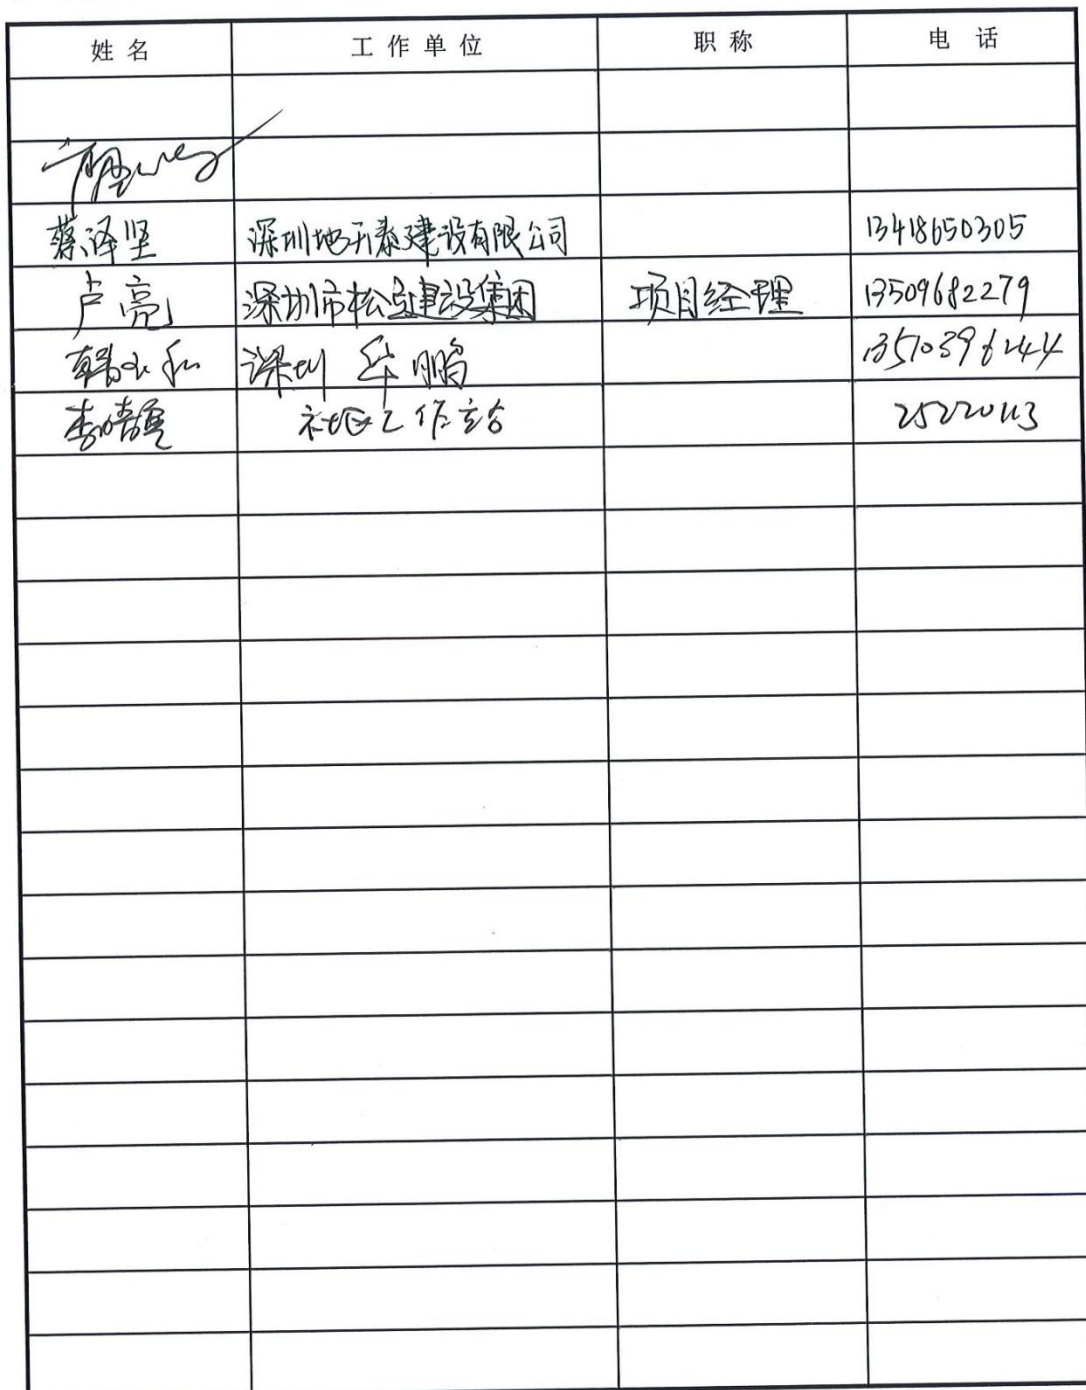 姓名 工作单位 职称 电话
蔡泽坚 深圳地天泰建设有限公司 13418650305
卢亮 深圳市松 建设集团 项目经理 13509682279
深圳 华鹏 13510396244
社区工作站